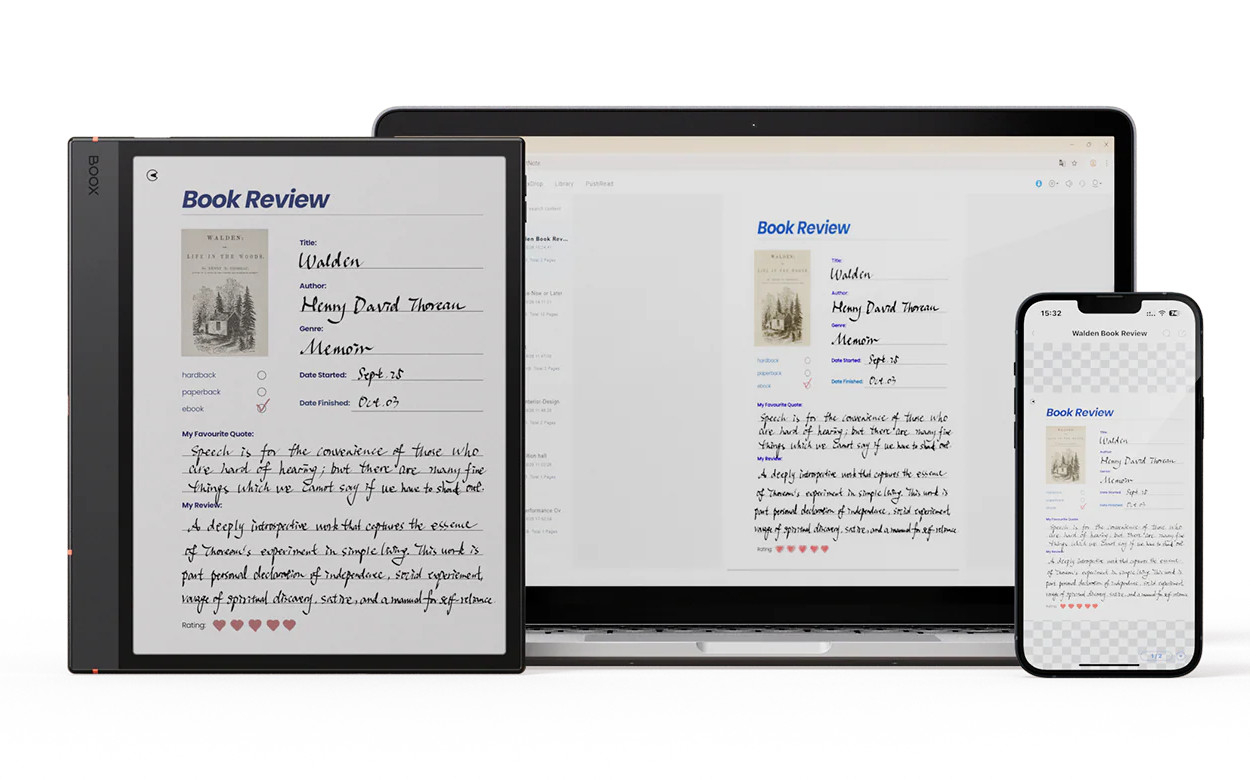 BOOX
Book Review
WALDEN;
OR,
LIFE IN THE WOODS.
BY HENRY D. THOREAU,
Title:
Walden
Author:
Henry David Thoreau
Genre:
Memoir
hardback
paperback
ebook
Date Started: Sept. 25
Date Finished: Oct. 03
My Favourite Quote:
Speech is for the convenience of those who
are hard of hearing; but there are many fine
things which we cannot say if we have to shout out.
My Review:
A deeply introspective work that captures the essence
of Thoreau's experiment in simple living. This work is
part personal declaration of independence, social experiment,
voyage of spiritual discovery, satire, and a manual for self-reliance
Rating:
Library
PushRead
search content
len Book Rev...
Book Review
WALDEN;
LIFE IN THE WOODS.
Title:
Walden
Author:
Henry David Thoreau
Genre:
Memoir
hardback
paperback
ebook
Date Started: Sept. 25
Date Finished: Oct. 03
My Favourite Quote:
Speech is for the convenience of those who
are hard of hearing; but there are many fine
things which we cannot say if we have to shout out.
My Review:
A deeply introspective work that captures the essence
of Thoreau's experiment in simple living. This work is
part personal declaration of independence, social experiment,
voyage of spiritual discovery, satire, and a manual for self-reliance
Rating
15:32
Walden Book Review
Book Review
Title:
Walden
Author:
Henry David Thoreau
Genre:
Memoir
Date Started: Sept. 25
Date Finished: Oct. 03
My Favourite Quote:
Speech is for the convenience of those who
are hard of hearing; but there are many fine
things which we cannot say if we have to shout out.
My Review:
A deeply introspective work that captures the essence
of Thoreau's experiment in simple living. This work is
part personal declaration of independence, social experiment,
voyage of spiritual discovery, satire, and a manual for self-reliance
Rating:
1 / 2